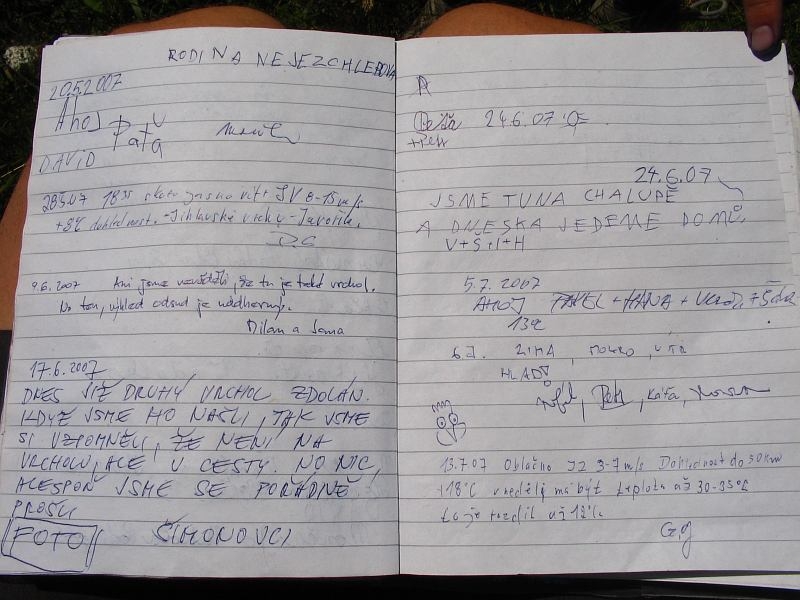 RODINA NEJEZCHLEBOVA
20.5.2007
Ahoj
Paťa
DAVID
28.5.07 18 35 skoro jasno vítr SV 8-15 m/s
dohlednost - Jihlavské vrchy - Javořice.
9.6.2007 Ani jsme nevěděli, že tu je také vrchol.
No ten výhled odsud je nádherný.
Milan a Jana
17.6.2007
DNES JIŽ DRUHÝ VRCHOL ZDOLÁN.
KDYŽ JSME HO NAŠLI, TAK JSME
SI VZPOMNĚLI, ŽE NENÍ NA
VRCHOLU, ALE U CESTY. NO NIC,
ALESPOŇ JSME SE POŘÁDNĚ
PROŠLI
FOTO ŠIMONOVCI
A
24.6.07
+Petr
24.6.07
JSME TU NA CHALUPĚ
A DNESKA JEDEME DOMŮ
V+S+I+H
5.7.2007
AHOJ PAVEL + HANA +
6.7. ZIMA, MOKRO, VÍTR
HLAD!
Petr, Káťa,
13.7.07 Oblačno JZ 3-7 m/s Dohlednost do 50 km
+18°C v neděli má být teplota až 30-35°C
to je rozdíl až
G.g